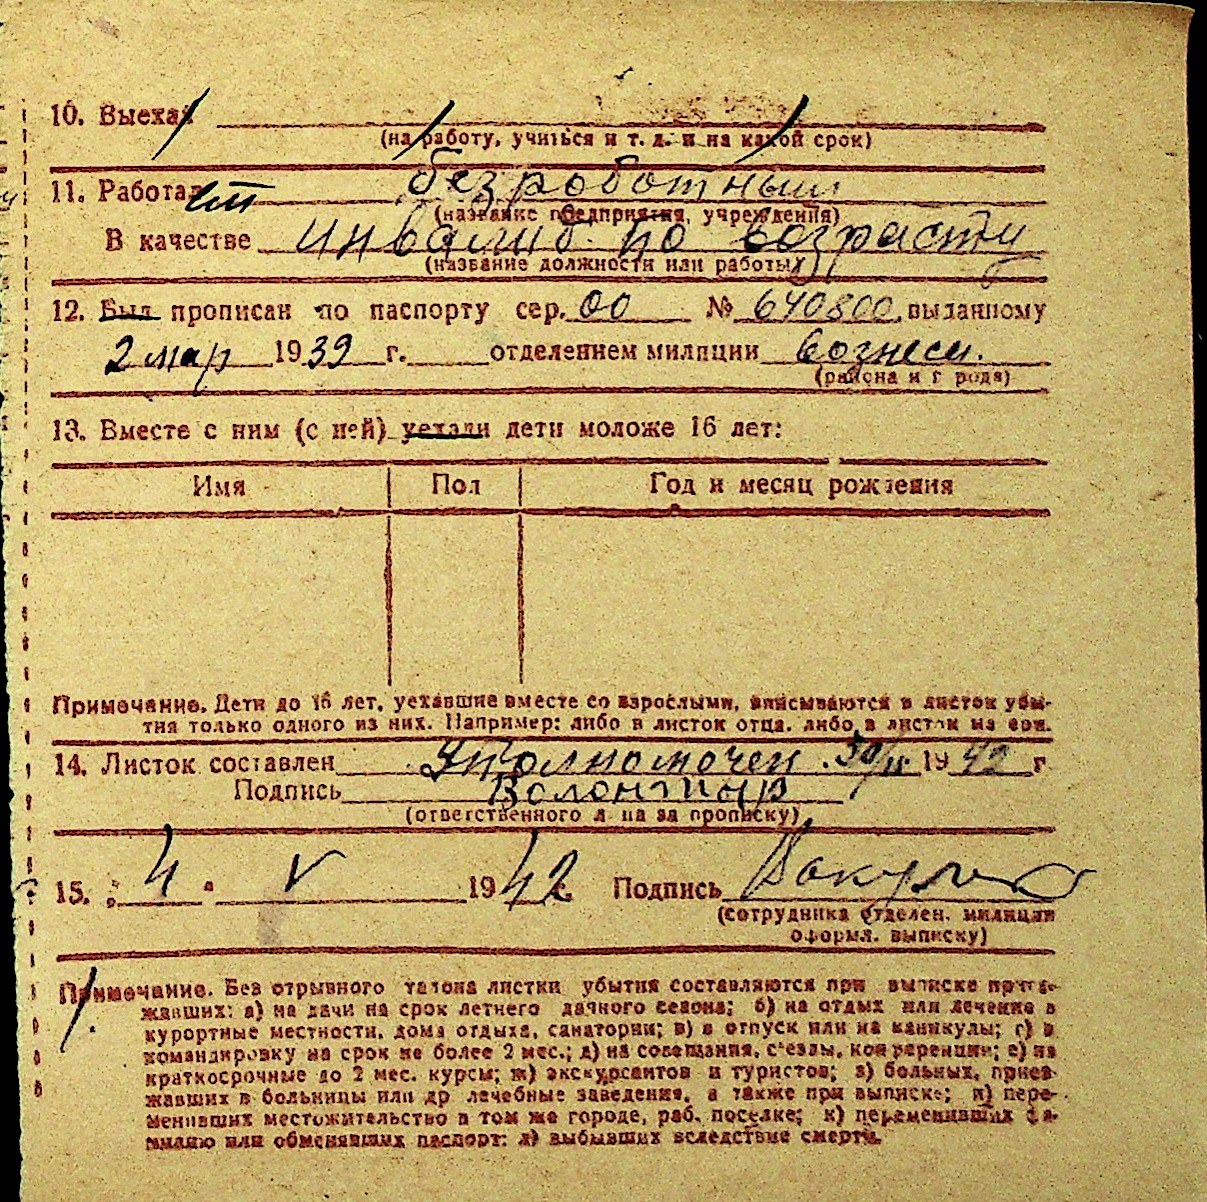 10. Выехал
(на работу, учиться и т. д. и на какой срок)
11. Работал безработный
(название предприятия, учреждения)
В качестве инвалид по возрасту
(название должности или работы)
12. Был прописан по паспорту сер. 00 № 640800 выданному
2 мар 1939 г. отделением милиции Вознесен.
(района и города)
13. Вместе с ним (с ней) уехали дети моложе 16 лет:
Имя Пол Год и месяц рождения
Примечание. Дети до 16 лет, уехавшие вместе со взрослыми, вписываются в листок убы-
тия только одного из них. Например: либо в листок отца, либо в листок матери.
14. Листок составлен Уполномочен. 30/ 1942 г
Подпись Волонтыр
(ответственного лица за прописку)
15. „4" V 1942 г. Подпись
(сотрудника отделен. милиции
оформл. выписку)
Примечание. Без отрывного талона листки убытия составляются при выписке приез-
жавших: а) на дачи на срок летнего дачного сезона; б) на отдых или лечение в
курортные местности, дома отдыха, санатории; в) в отпуск или на каникулы; г) в
командировку на срок не более 2 мес.; д) на совещания, съезды, конференции; е) на
краткосрочные до 2 мес. курсы; ж) экскурсантов и туристов; з) больных, приез-
жавших в больницы или др лечебные заведения, а также при выписке; и) пере-
менивших местожительство в том же городе, раб. поселке; к) переменивших фа-
милию или обменявших паспорт; л) выбывших вследствие смерти.